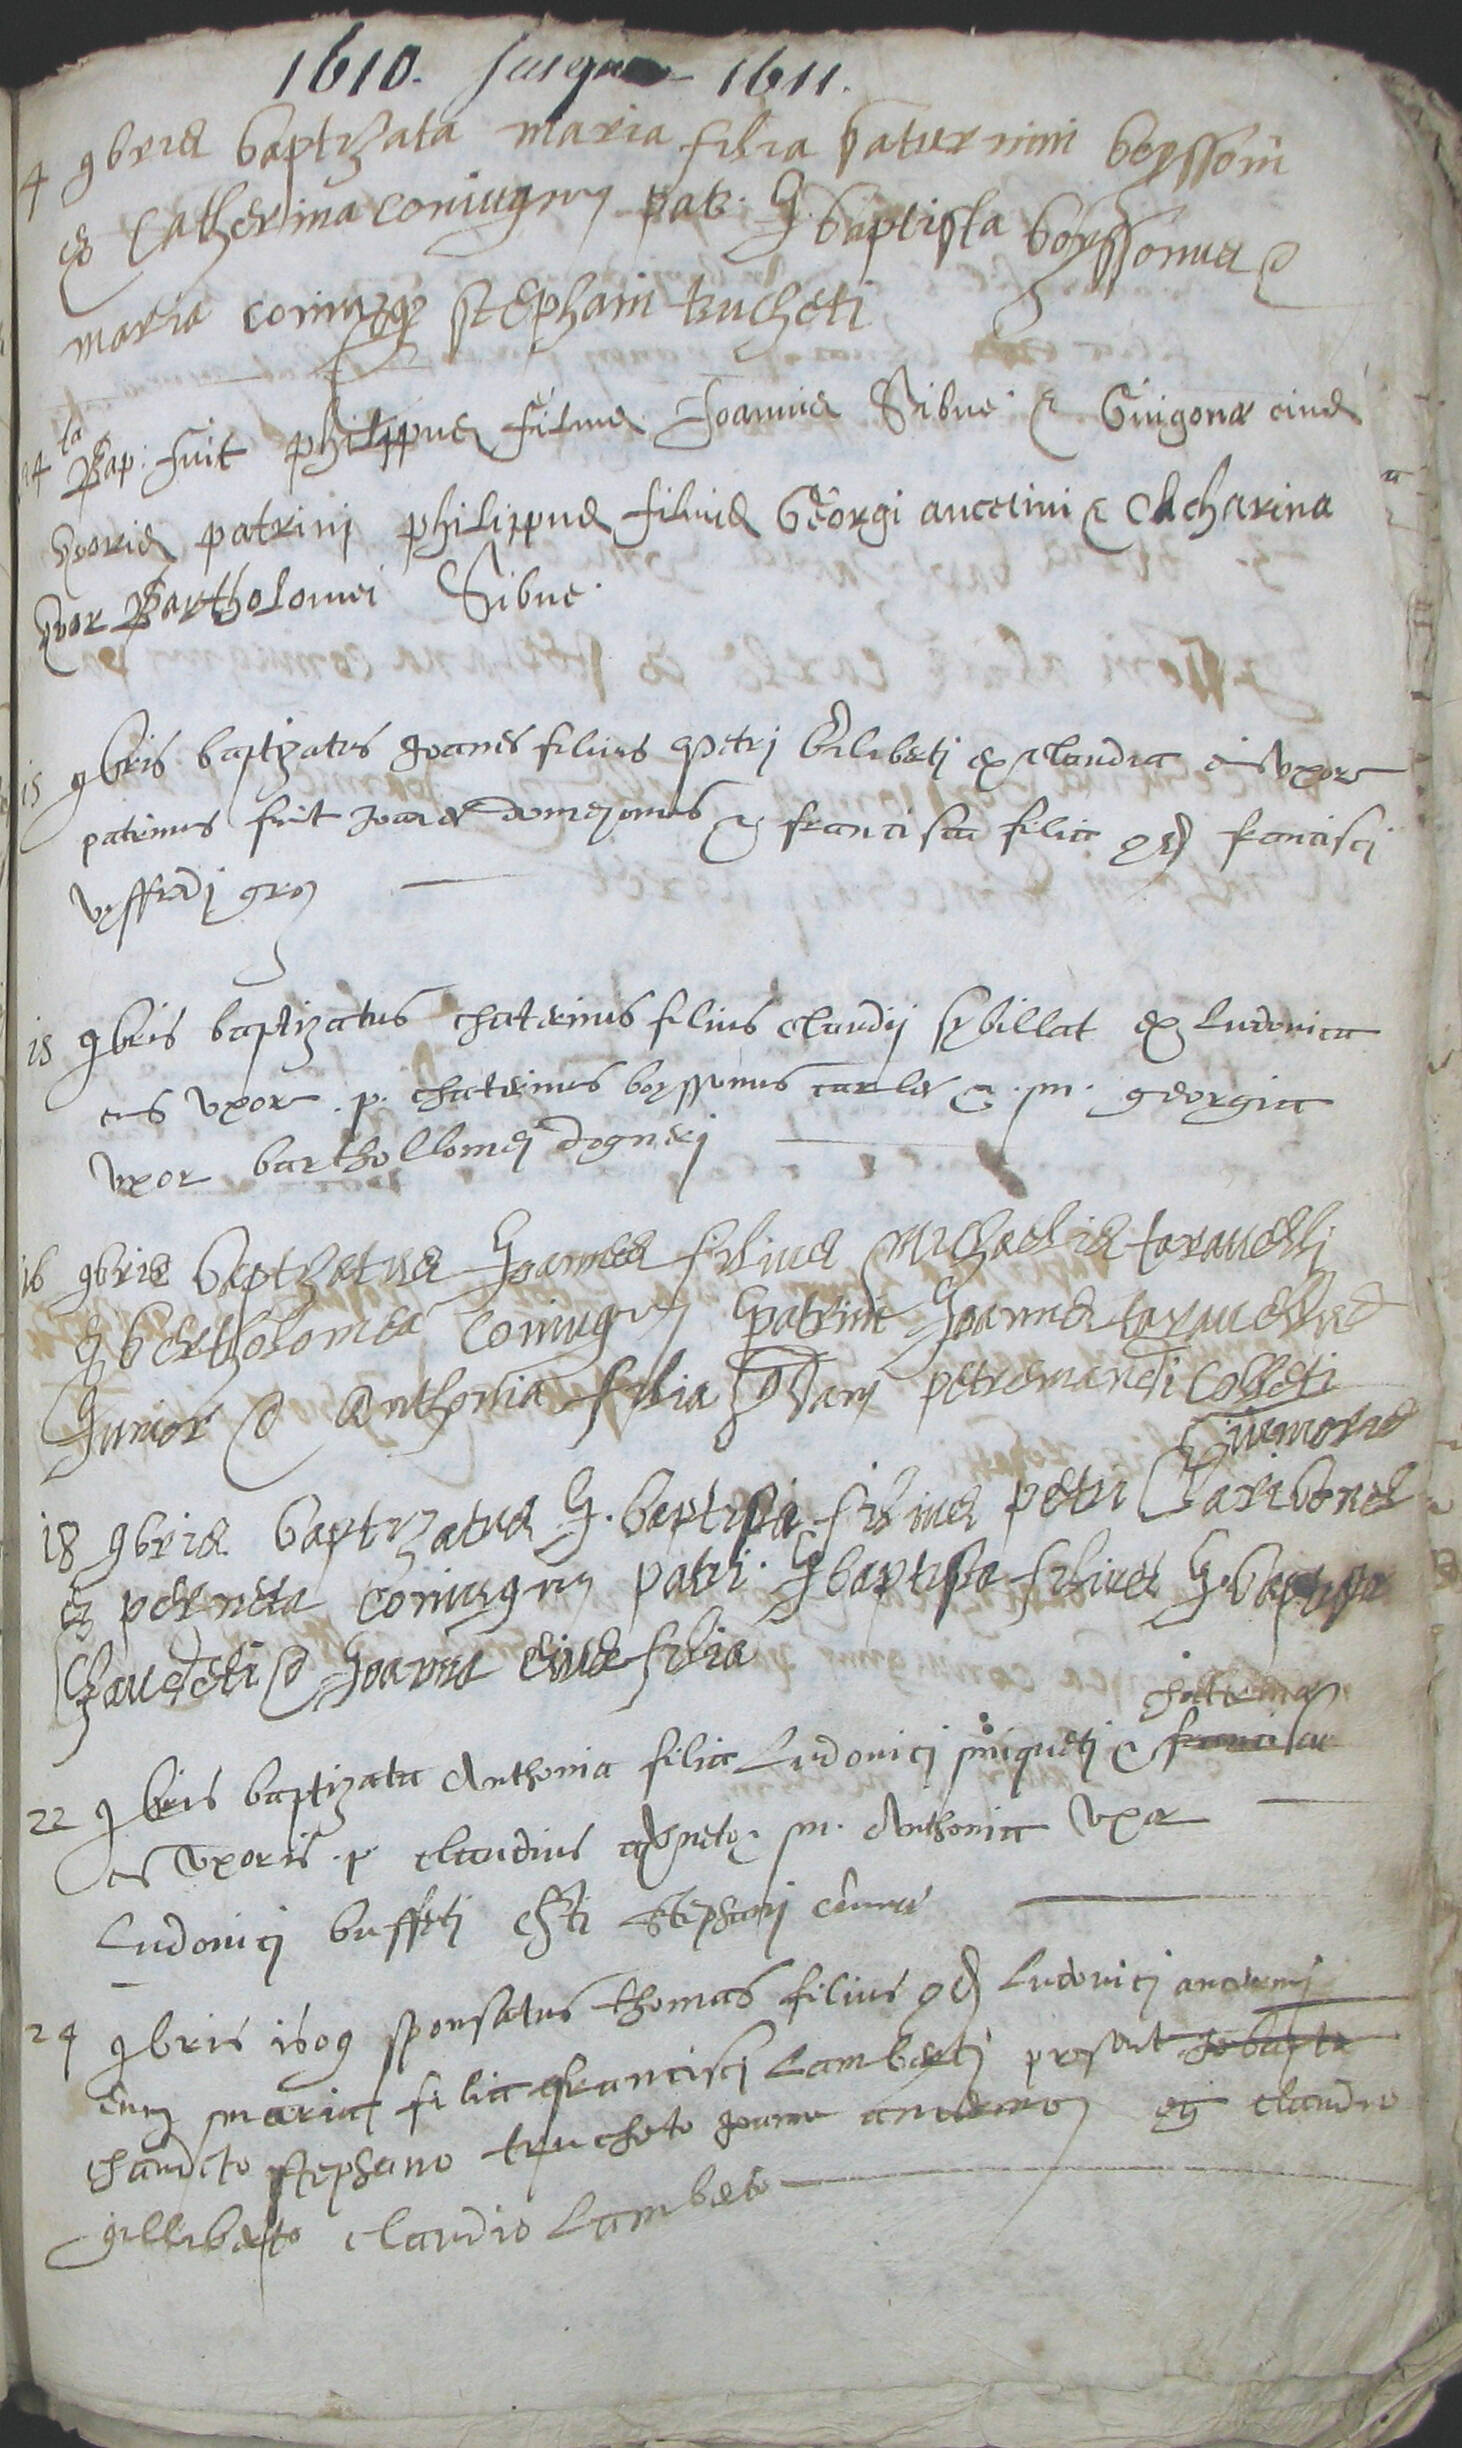 1610. Jusqu 1611.
4 9bris baptizata maria filia saturnini boyssoni
et Catherina coniugum pat. G. baptista boyssonus &
maria coniuge stephani trucheti
14 ta Bap: fuit philippus filius Joannis Sibue & Guigonæ eius
uxoris patrini philippus filius Georgi ancelini & Chatharina
uxor Bartholomei Sibue.
15 9bris baptizatus Joanes filius petri Giliberti ex claudia eius uxore
patrinus fuit Joanes domezonus & francisca filia qd francisci
gros
15 9bris baptizatus chaterinus filius claudij sybillat ex Ludovica
eius uxore . p. chaterinus boyssonus carles & . m. georgia
uxor barthollomei dogneri
16 9bris baptizatus Joannes filius Michaelis taravelli
et bertholomea coniugum patrini Joannes taravellus
Junior & Anthonia filia qdam petremandi Colleti
iunioris
18 9bris baptizatus G. baptista filius petri Claribonel
et perneta coniugum patri. G baptista filius G. baptista
Chaudeti & Joanna eius filia
chaterina
22 9bris baptizata Anthonia filia Ludovici miqueti & francisca
eius uxoris . p. claudius m. Anthonia uxor
Ludovici buffeti Stephani
24 9bris 1609 sponsatus thomas filius qd Ludovici
cum maria filia francisci Lamberti present Jo bapta
chaudeto stephano trucheto Joanne et claudio
gilliberto claudio Lamberto